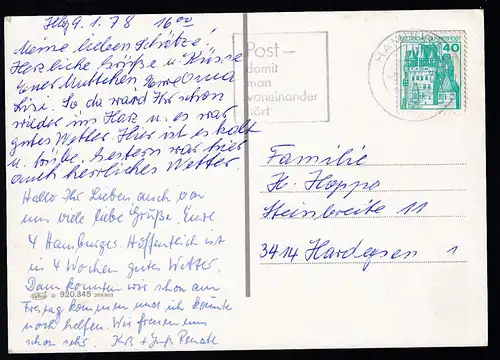 Hbg 9.1.78 16 00
Meine lieben Schätze!
Herzliche Grüße u. Küsse
Eurer Muttchen, Eure Oma
Lisi. So da ward Ihr schon
wieder im Harz u. es war
gutes Wetter. Hier ist es kalt
u. trübe. Gestern war hier
auch herrliches Wetter.
Hallo Ihr Lieben auch von
uns viele liebe Grüße. Eure
4 Hamburger. Hoffentlich ist
in 4 Wochen gutes Wetter.
Dann könnten wir schon am
Freitag kommen und ich könnte
noch helfen. Wir freuen uns
schon sehr. Renate
920.345
Post-
damit
man
voneinander
hört
DEUTSCHE BUNDESPOST
40
Familie
H. Hoppe
Steinbreite 11
3414 Hardegsen 1